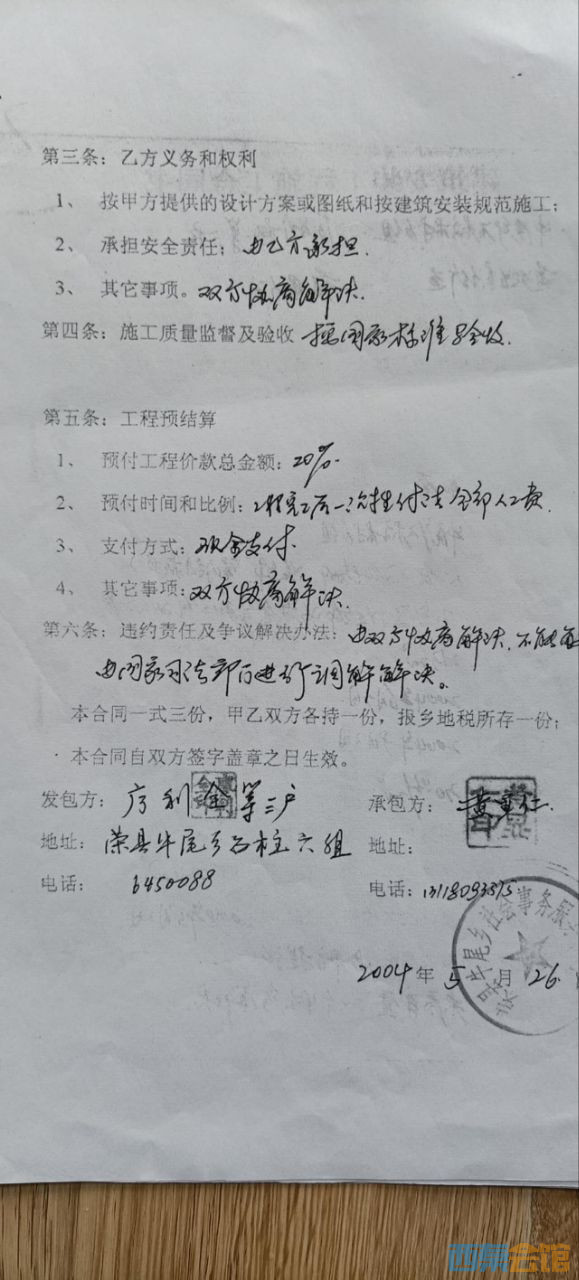 第三条：乙方义务和权利
1、 按甲方提供的设计方案或图纸和按建筑安装规范施工；
2、 承担安全责任：由乙方承担.
3、 其它事项。双方协商解决.
第四条：施工质量监督及验收 按国家标准验收.
第五条：工程预结算
1、 预付工程价款总金额：20%.
2、 预付时间和比例：工程完工后一次性付清全部人工费.
3、 支付方式：现金支付.
4、 其它事项：双方协商解决.
第六条：违约责任及争议解决办法：由双方协商解决.不能
由国家司法部门进行调解解决。
本合同一式三份，甲乙双方各持一份，报乡地税所存一份；
本合同自双方签字盖章之日生效。
发包方： 利金等三户 承包方：黄
地址： 荣县牛尾乡石柱六组 地址：
电话： 6450088 电话：
牛尾乡社会事务服
2004年5月26
西祠会馆